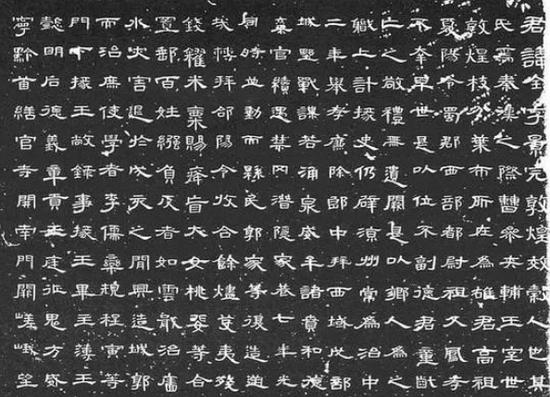 君諱全字景完敦煌效穀人也其
氏焉秦漢之際曹參夾輔王室世
敦煌枝分葉布所在為雄君高祖
夏陽令蜀郡西部都尉祖父鳳孝
不幸早世是以位不副德君童齔
止之敬禮無遺闕是以鄉人為之
職上計掾史仍辟涼州常為治中
二年舉孝廉除郎中拜西域戊部
城野戰謀若涌泉威牟諸賁和德
棄官續遇禁网潛隱家巷七年光
同時並動而縣民郭家等復造逆
哉轉拜郃陽令收合餘燼芟夷殘
錢糴米粟賜癃盲大女桃婓等合
置郵百姓繈負反者如雲戢治廧
水灾害退於戌亥之間興造城郭
而治庶使學者李儒欒規程寅等
門下掾王敞錄事掾王畢主薄王
懿明后德義章貢王庭征鬼方威
寧黔首繕官寺開南門闕嵯峨望